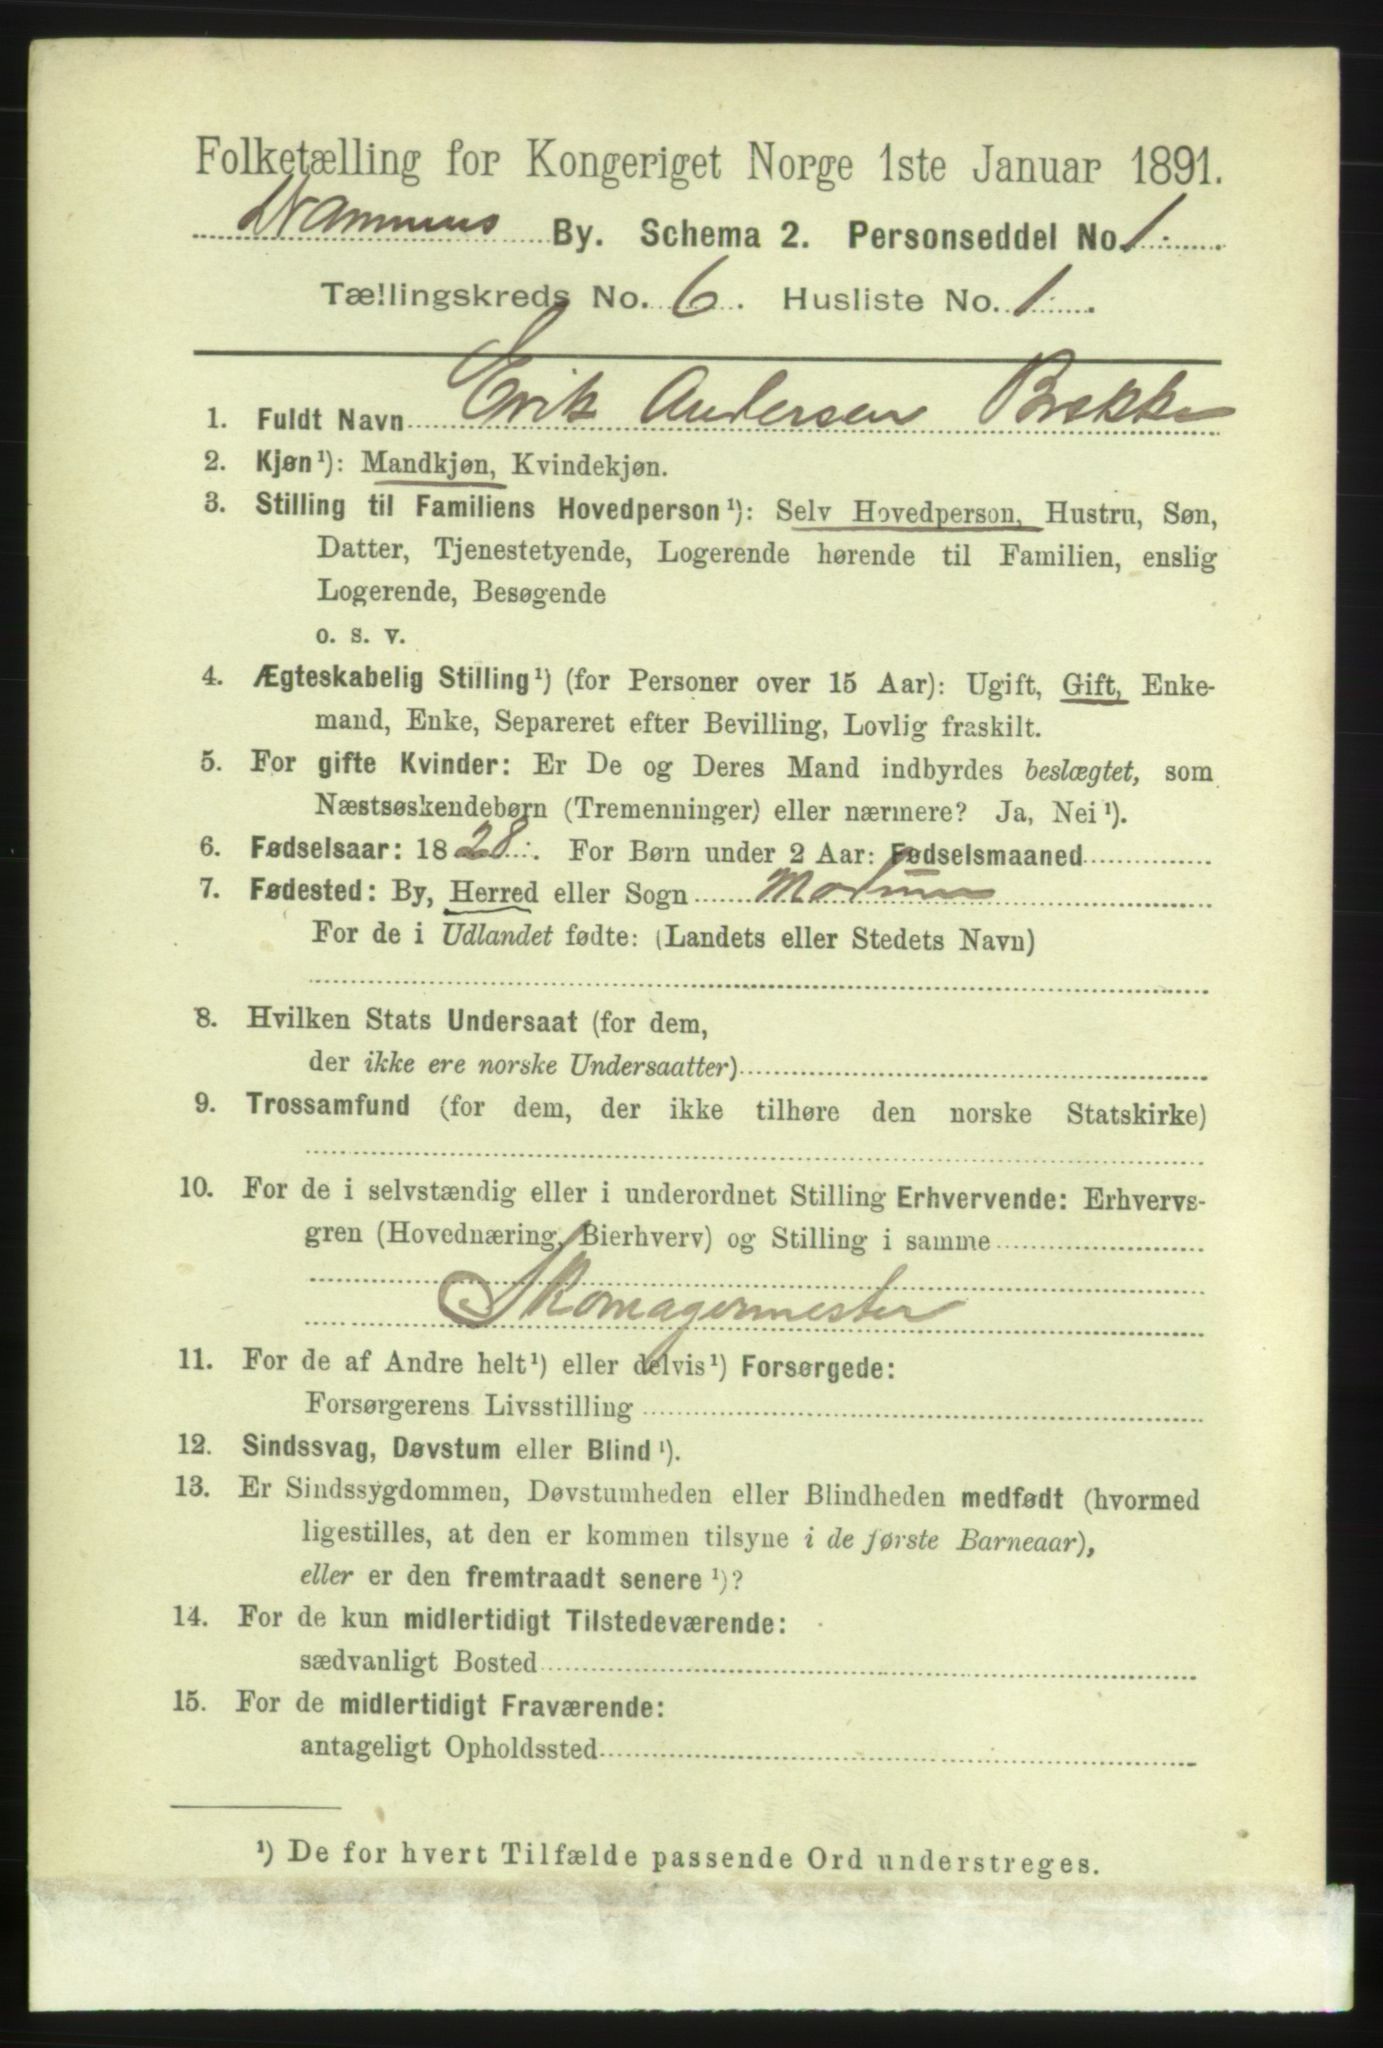 Folketælling for Kongeriget Norge 1ste Januar 1891.
Drammens By. Schema 2. Personseddel No. 1.
Tællingskreds No. 6. Husliste No. 1.
1. Fuldt Navn Erik Andersen Brekke
2. Kjøn¹): Mandkjøn, Kvindekjøn.
3. Stilling til Familiens Hovedperson¹): Selv Hovedperson, Hustru, Søn,
Datter, Tjenestetyende, Logerende hørende til Familien, enslig
Logerende, Besøgende
o. s. v.
4. Ægteskabelig Stilling¹) (for Personer over 15 Aar): Ugift, Gift, Enke-
mand, Enke, Separeret efter Bevilling, Lovlig fraskilt.
5. For gifte Kvinder: Er De og Deres Mand indbyrdes beslægtet, som
Næstsøskendebørn (Tremenninger) eller nærmere? Ja, Nei¹).
6. Fødselsaar: 1828. For Børn under 2 Aar: Fødselsmaaned
7. Fødested: By, Herred eller Sogn Modum
For de i Udlandet fødte: (Landets eller Stedets Navn)
8. Hvilken Stats Undersaat (for dem,
der ikke ere norske Undersaatter)
9. Trossamfund (for dem, der ikke tilhøre den norske Statskirke)
10. For de i selvstændig eller i underordnet Stilling Erhvervende: Erhvervs-
gren (Hovednæring, Bierhverv) og Stilling i samme
Skomagermester
11. For de af Andre helt¹) eller delvis¹) Forsørgede:
Forsørgerens Livsstilling
12. Sindssvag, Døvstum eller Blind¹).
13. Er Sindssygdommen, Døvstumheden eller Blindheden medfødt (hvormed
ligestilles, at den er kommen tilsyne i de første Barneaar),
eller er den fremtraadt senere¹)?
14. For de kun midlertidigt Tilstedeværende:
sædvanligt Bosted
15. For de midlertidigt Fraværende:
antageligt Opholdssted
¹) De for hvert Tilfælde passende Ord understreges.